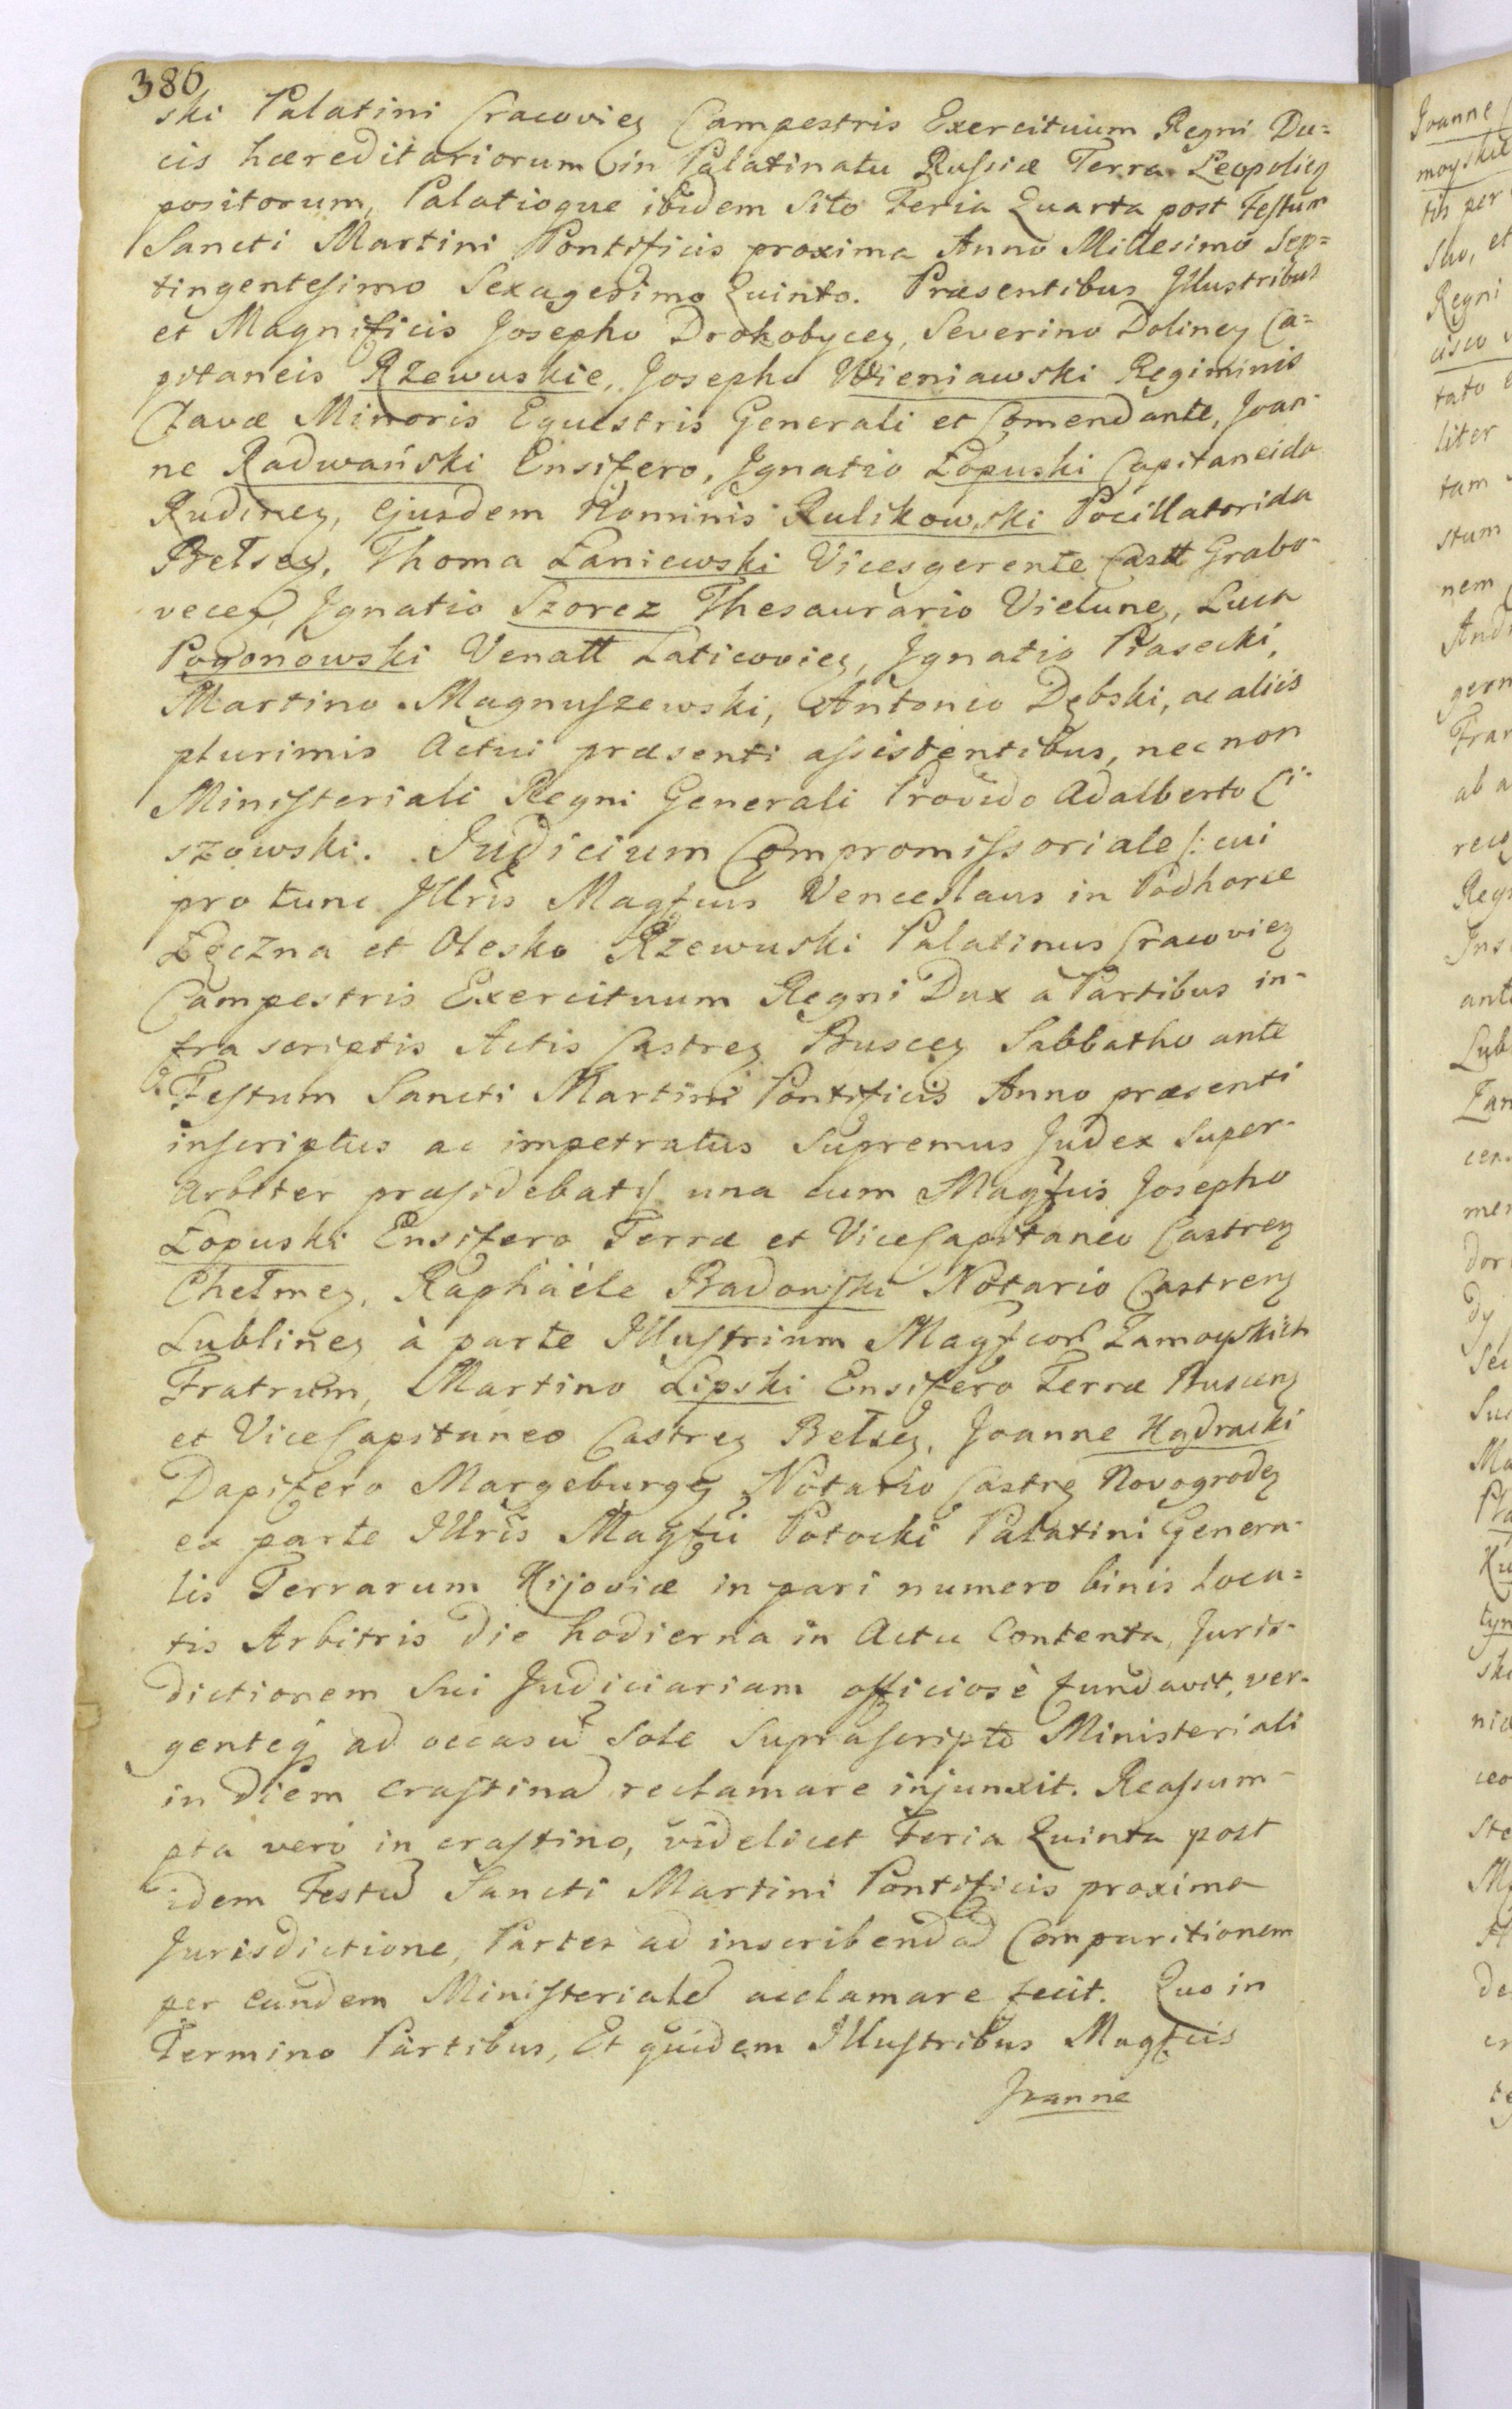 386
ski Palatini Cracovien Campestris Exercituum Regni Du=
cis hæreditariorum in Palatinatu Russiæ Terra Leopolien
positorum, Palatioque ibidem sito Feria Quarta post Festum
Sancti Martini Pontificis proxima Anno Millesimo Sep=
tingentesimo Sexagesimo Quinto. Præsentibus Illustribus
et Magnificis Josepho Drohobycen, Severino Dolinen Ca=
pitaneis Rzewuskie, Josepho Wieniawski Regiminis
Clavæ Minoris Equestris Generali et Comendante, Joan-
ne Radwański Ensifero, Ignatio Łopuski Capitaneida
Rudinen, Ejusdem Nominis Rulikowski Pocillatorida
Bełsen, Thoma Łaniewski Vicesgerente Castt Grabo-
vecen, Ignatio Szorcz Thesaurario Vielunen, Luca
Pogonowski Venatt Laticovien, Ignatio Piasecki,
Martino Magnuszewski, Antonio Dębski, ac aliis
plurimis Actui præsenti assistentibus, nec non
Ministeriali Regni Generali Provido Adalberto Ci-
szowski. Judicium Compromissoriale /: cui
pro tunc Illris Magfcus Venceslaus in Podhorce
Łęczna et Olesko Rzewuski Palatinus Cracovien
Campestris Exercituum Regni Dux à Partibus in-
fra scriptis Actis Castren Buscen Sabbatho ante
Festum Sancti Martini Pontificis Anno præsenti
inscriptus ac impetratus Supremus Judex Super-
arbiter præsidebat :/ una cum Magfcis Josepho
Łopuski Ensifero Terræ et ViceCapitaneo Castren
Chełmen, Raphaële Badowski Notario Castren
Lublinen à parte Illustrium Magfcor Zamoyskich
Fratrum, Martino Lipski Ensifero Terræ Buscen
et ViceCapitaneo Castren Bełsen, Joanne Hadracki
Dapifero Margeburgen Notario Castren Novogroden
ex parte Illris Magfci Potocki Palatini Genera-
lis Terrarum Kijoviæ in pari numero binis Loca=
tis Arbitris die hodierna in Actu Contenta, Juris-
dictionem Sui Judiciariam officiosè fundavit, ver-
genteq ad occasu Sole Suprascripto Ministeriali
in diem crastina reclamare injunxit. Reassum-
pta verò in crastino, videlicet Feria Quinta post
idem Festu Sancti Martini Pontificis proxima
Jurisdictione, Partes ad inscribenda Comparitionem
per eundem Ministeriale acclamare fecit. Quo in
Termino Partibus, Et quidem Illustribus Magfcis
Joanne